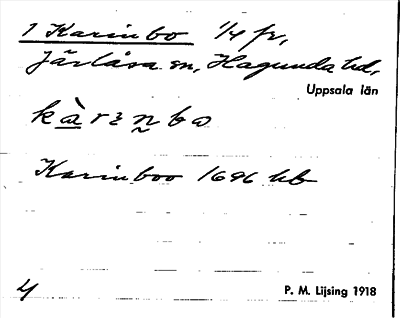 1 Karinbo 1/4 fr,
Järlåsa sn, Hagunda hd,
Uppsala län
Karinboo 1696 hb
4
P. M. Lijsing 1918